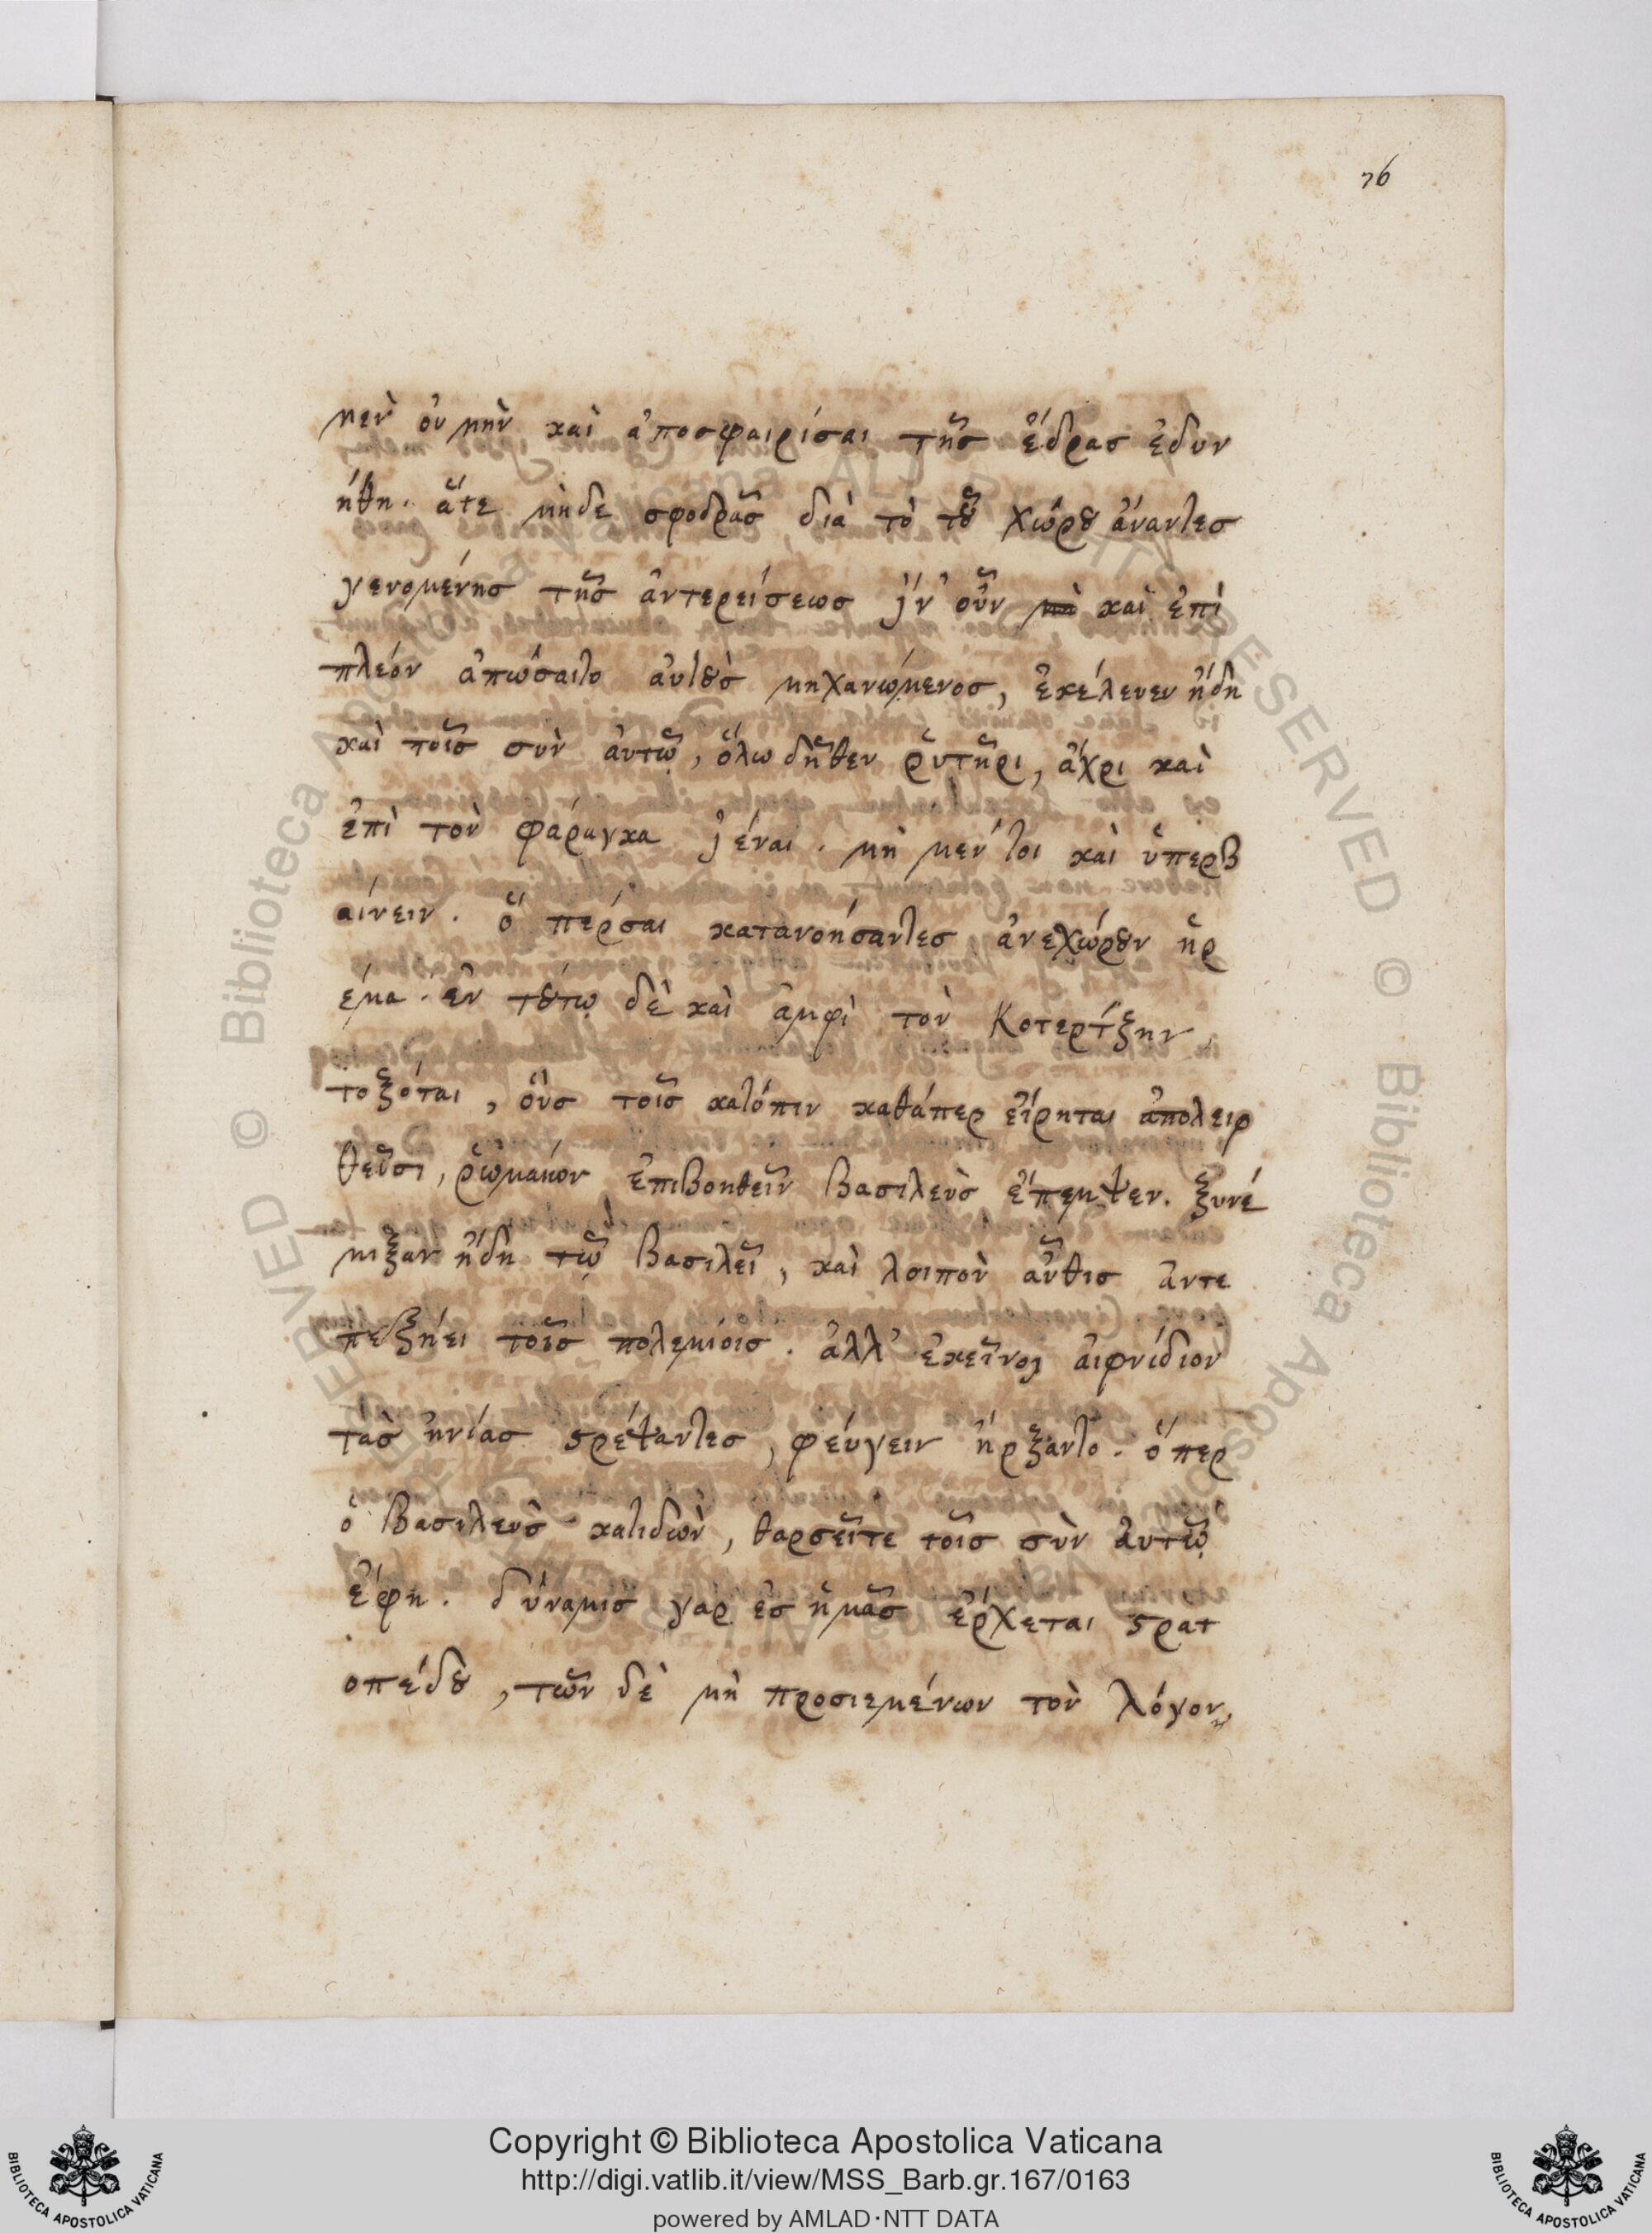 76
μὲν οὐ μὴν καὶ ἀποσφαιρίσαι τῆς ἕδρας ἐδυν
ήθη. ἅτε μὴδε σφοδρᾶς διὰ τὸ τοῦ χώρου ἄναντες
γενομένης τῆς ἀντερείσεως ἵν' οὖν μὴ καὶ ἐπὶ
πλεόν ἀπώσαιτο αὐτοὺς μηχανώμενος, ἐκέλευεν ἤδη
καὶ τοῖς σὺν αὐτῷ, ὅλω δῆθεν ῥυτῆρι, ἄχρι καὶ
ἐπὶ τὸν φάραγκα ἰέναι. μὴ μέντοι καὶ ὑπερβ
αίνειν. ὅ πέρσαι κατανοήσαντες ἀνεχώρουν ἠρ
έμα. ἐν τούτῳ δὲ καὶ ἀμφὶ τὸν Κοτερτξην,
τοξόται, οὓς τοῖς κατόπιν καθάπερ εἴρηται ἀπολειφ
θεῦσι, ῥωμαίων ἐπιβοηθεῖν βασιλεὺς ἔπεμψεν. ξυνέ
μιξαν ἤδη τῷ βασιλεῖ, καὶ λοιπὸν αὖθις ἀντε
πεξῄει τοῖς πολεμίοις. ἀλλ' ἐκεῖνοι αἰφνίδιον
τὰς ἡνίας στρέψαντες, φεύγειν ἤρξαντο. ὅπερ
ὁ βασιλεὺς κατιδὼν, θαρσεῖτε τοῖς σὺν αὐτῷ
ἔφη. δύναμις γὰρ ἐς ἡμᾶς ἔρχεται στρατ
οπέδου, τῶν δὲ μὴ προσιεμένων τὸν λόγον,
© Biblioteca Apostolica Vaticana ALL RIGHTS RESERVED
Copyright © Biblioteca Apostolica Vaticana
http://digi.vatlib.it/view/MSS_Barb.gr.167/0163
powered by AMLAD·NTT DATA
BIBLIOTECA APOSTOLICA VATICANA
BIBLIOTECA APOSTOLICA VATICANA